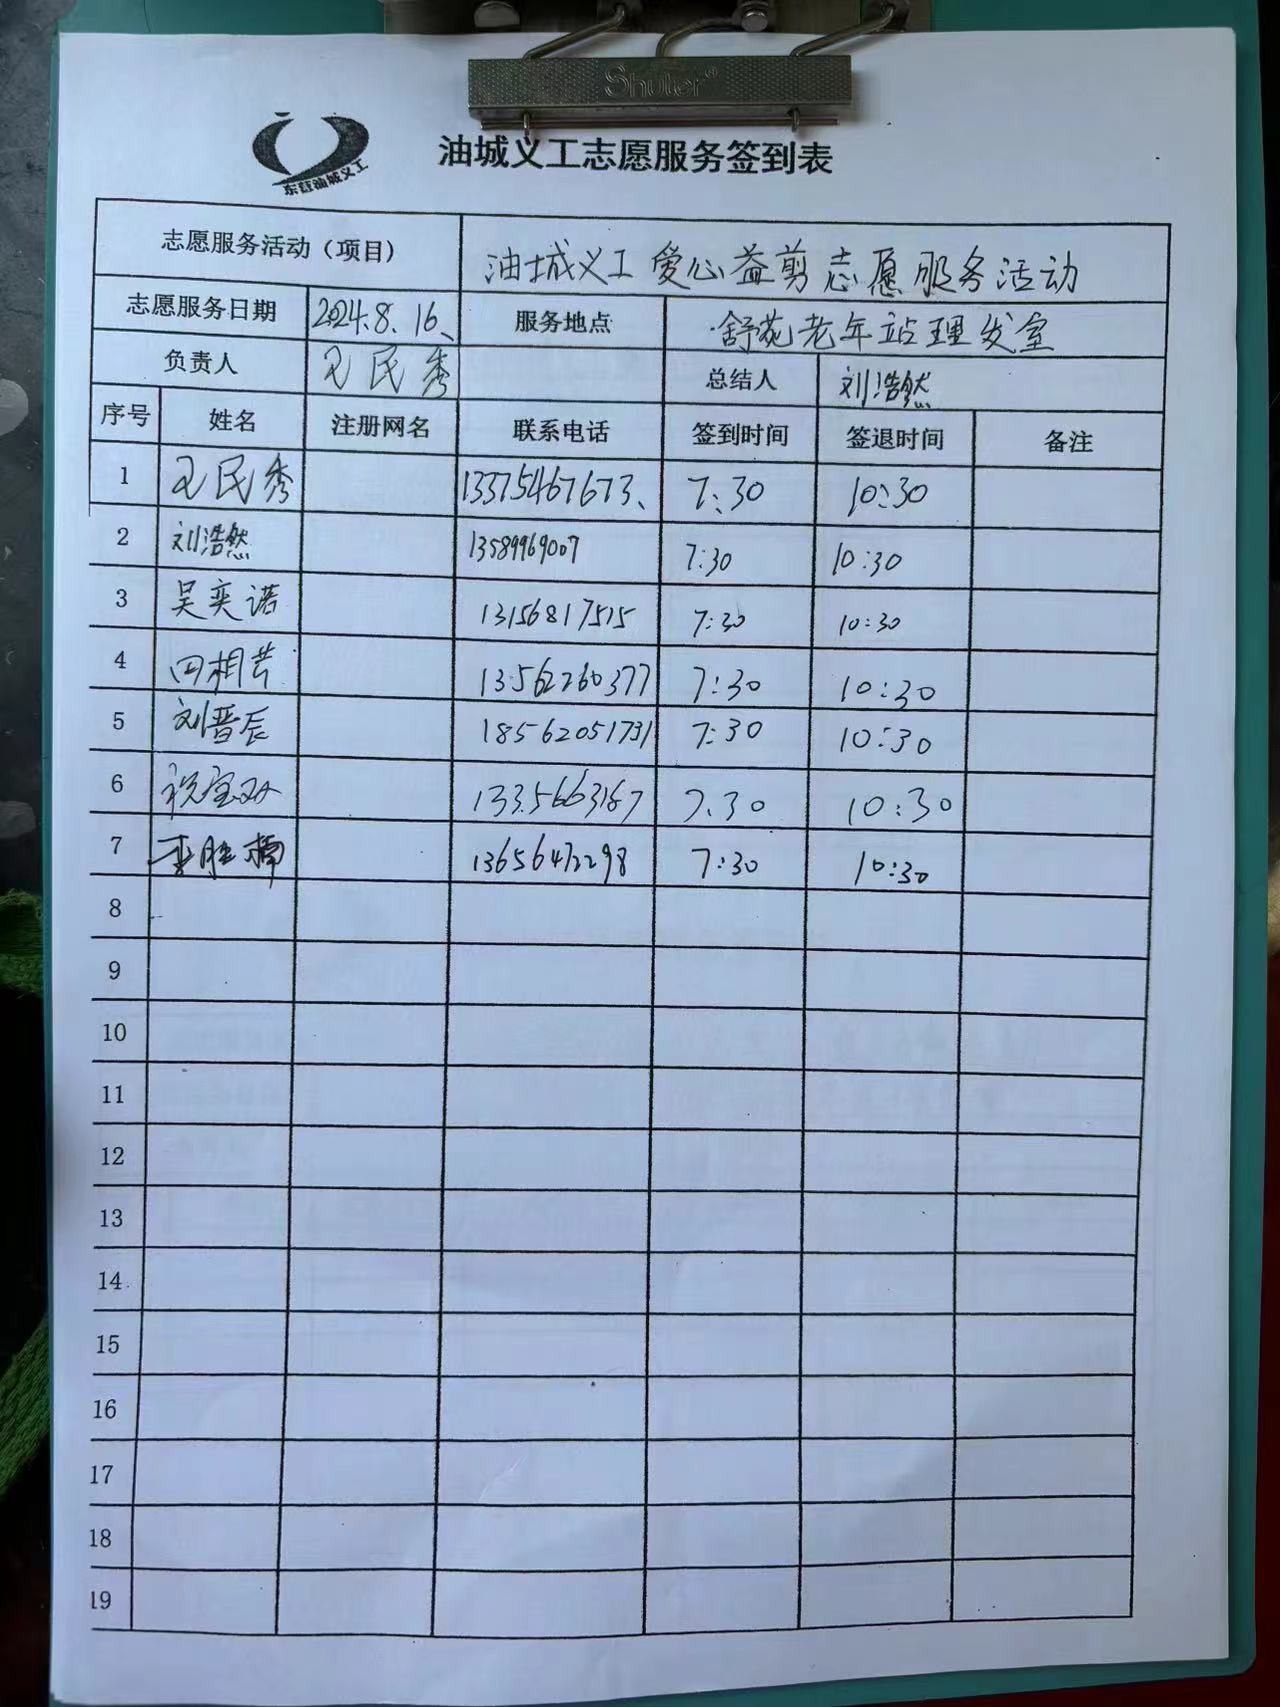 Shuter®
东营油城义工
油城义工志愿服务签到表
志愿服务活动（项目） 油城义工爱心益剪志愿服务活动
志愿服务日期 2024.8.16、 服务地点 舒苑老年站理发室
负责人 王民秀 总结人 刘浩然
序号 姓名 注册网名 联系电话 签到时间 签退时间 备注
1 王民秀 13375467673、 7:30 10:30
2 刘浩然 13589969007 7:30 10:30
3 吴奕诺 13156817515 7:30 10:30
4 田相芹 13562260377 7:30 10:30
5 刘晋辰 18562051731 7:30 10:30
6 祝宝 7.30 10:30
7 李胜楠 13656472298 7:30 10:30
8
9
10
11
12
13
14
15
16
17
18
19